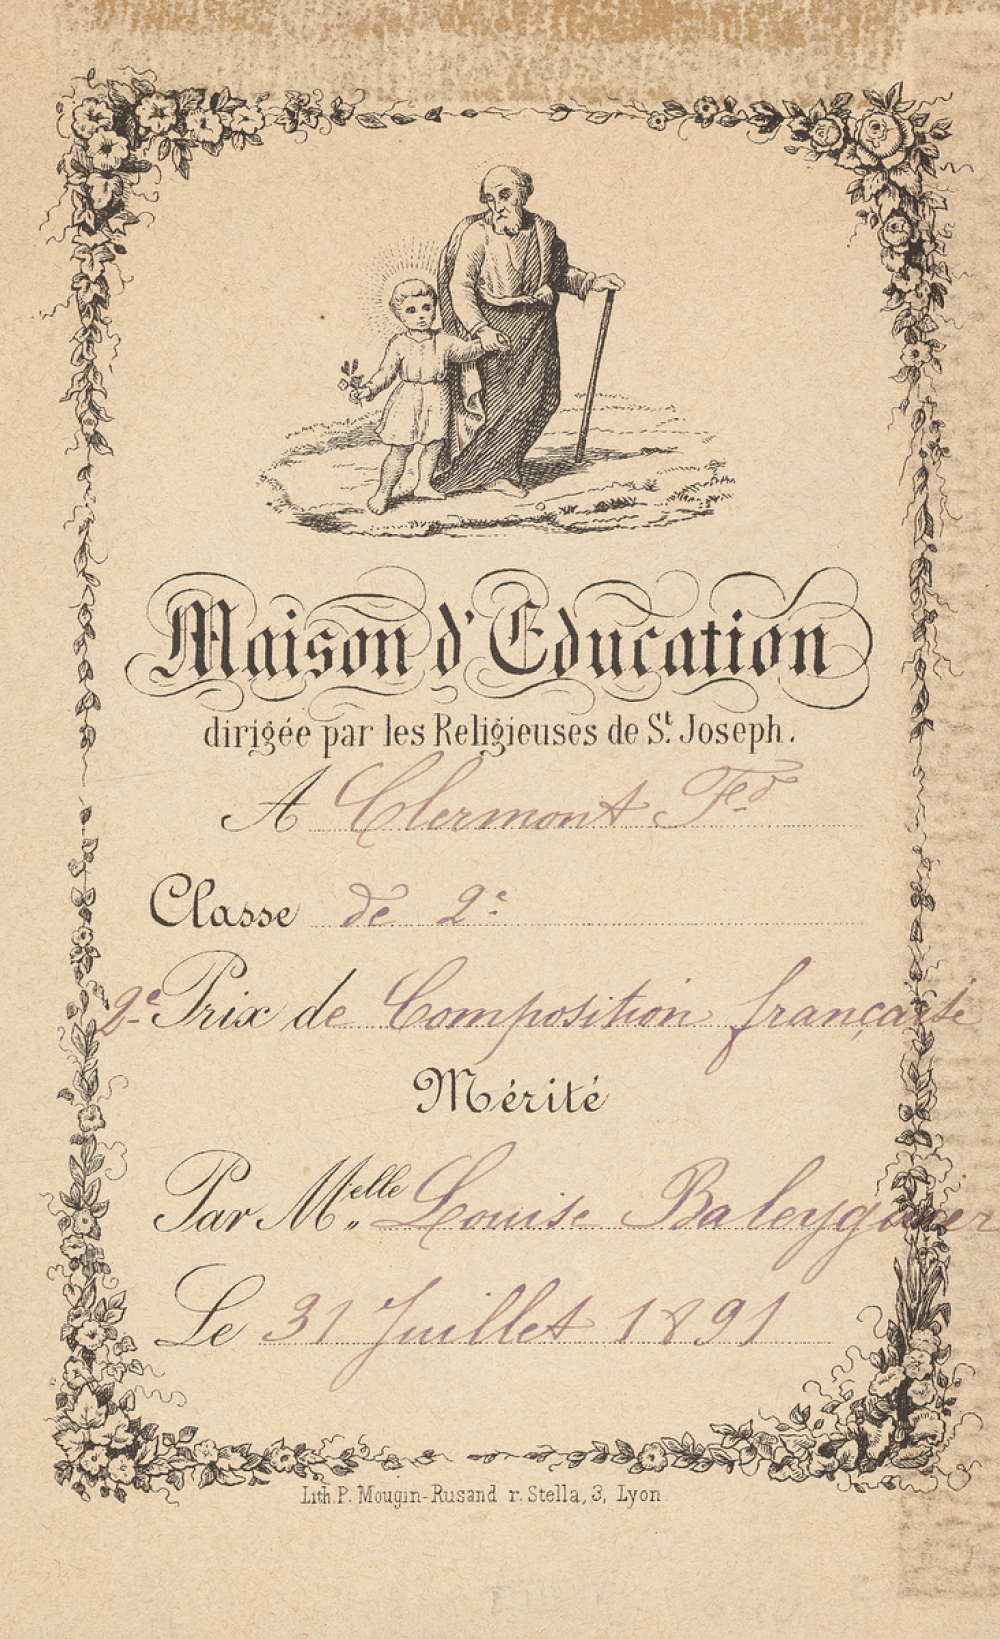 Maison d'Education
dirigée par les Religieuses de St. Joseph.
A Clermont Fd
Classe de 2e
2e Prix de Composition française
Mérité
Par Melle Louise Baleyguier
Le 31 Juillet 1891
Lith. P. Mougin-Rusand r. Stella, 3, Lyon.